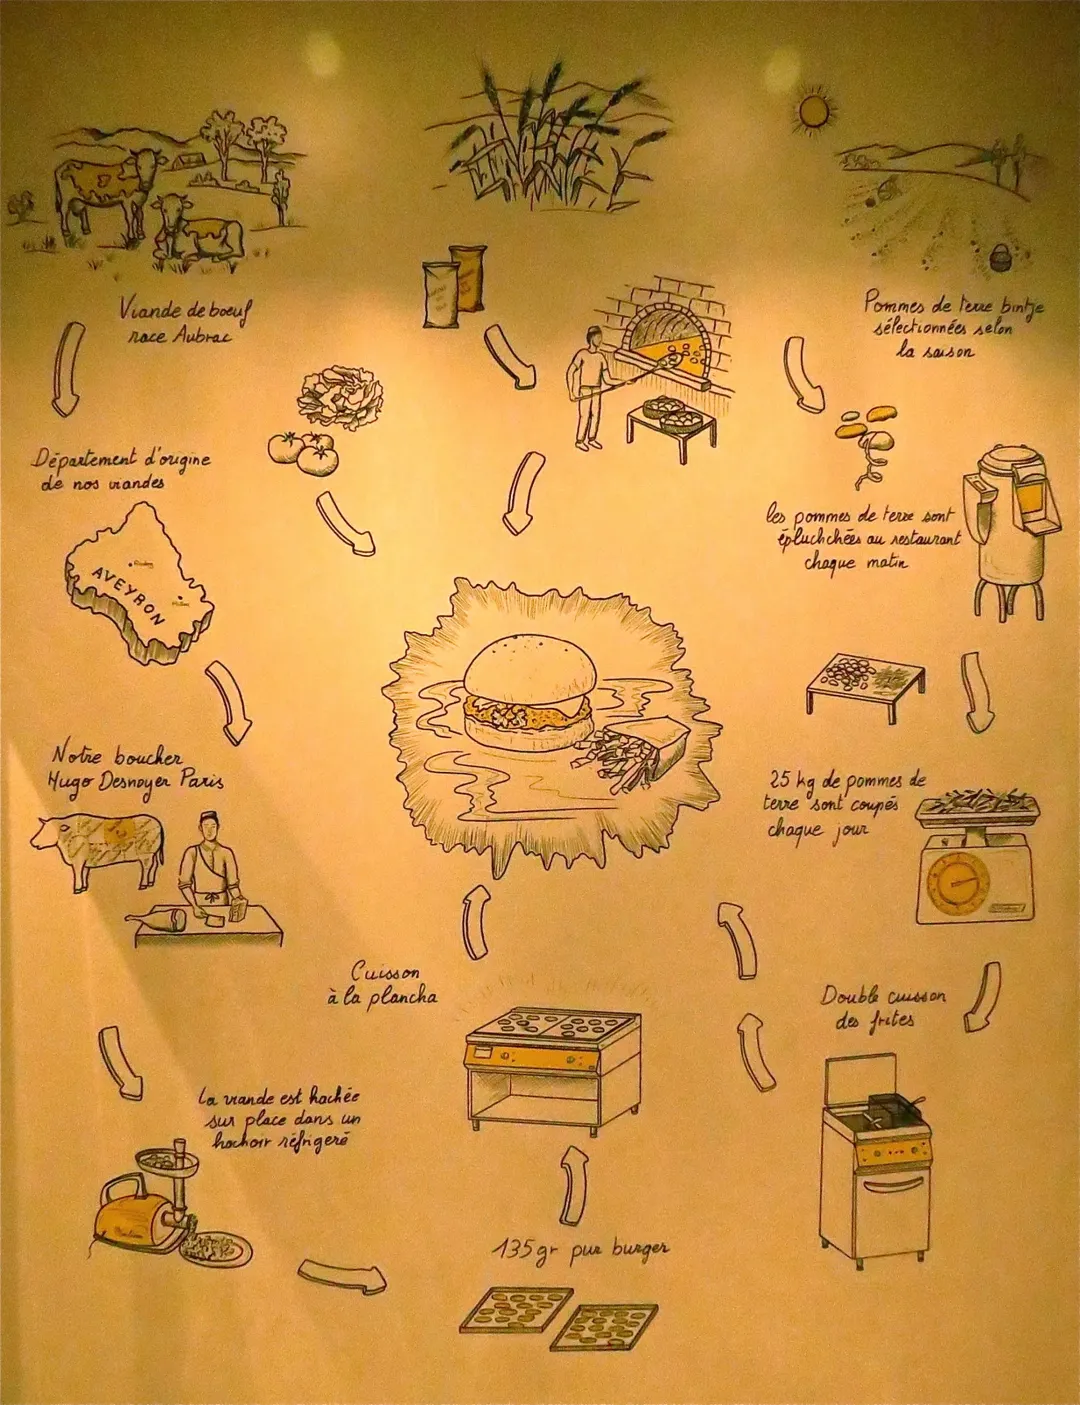 Viande de boeuf
race Aubrac
Pommes de terre bintje
sélectionnées selon
la saison
Département d'origine
de nos viandes
AVEYRON
les pommes de terre sont
épluchchées au restaurant
chaque matin
Notre boucher
Hugo Desnoyer Paris
25 kg de pommes de
terre sont coupés
chaque jour
Cuisson
à la plancha
Double cuisson
des frites
La viande est hachée
sur place dans un
hachoir réfrigeré
135gr pur burger